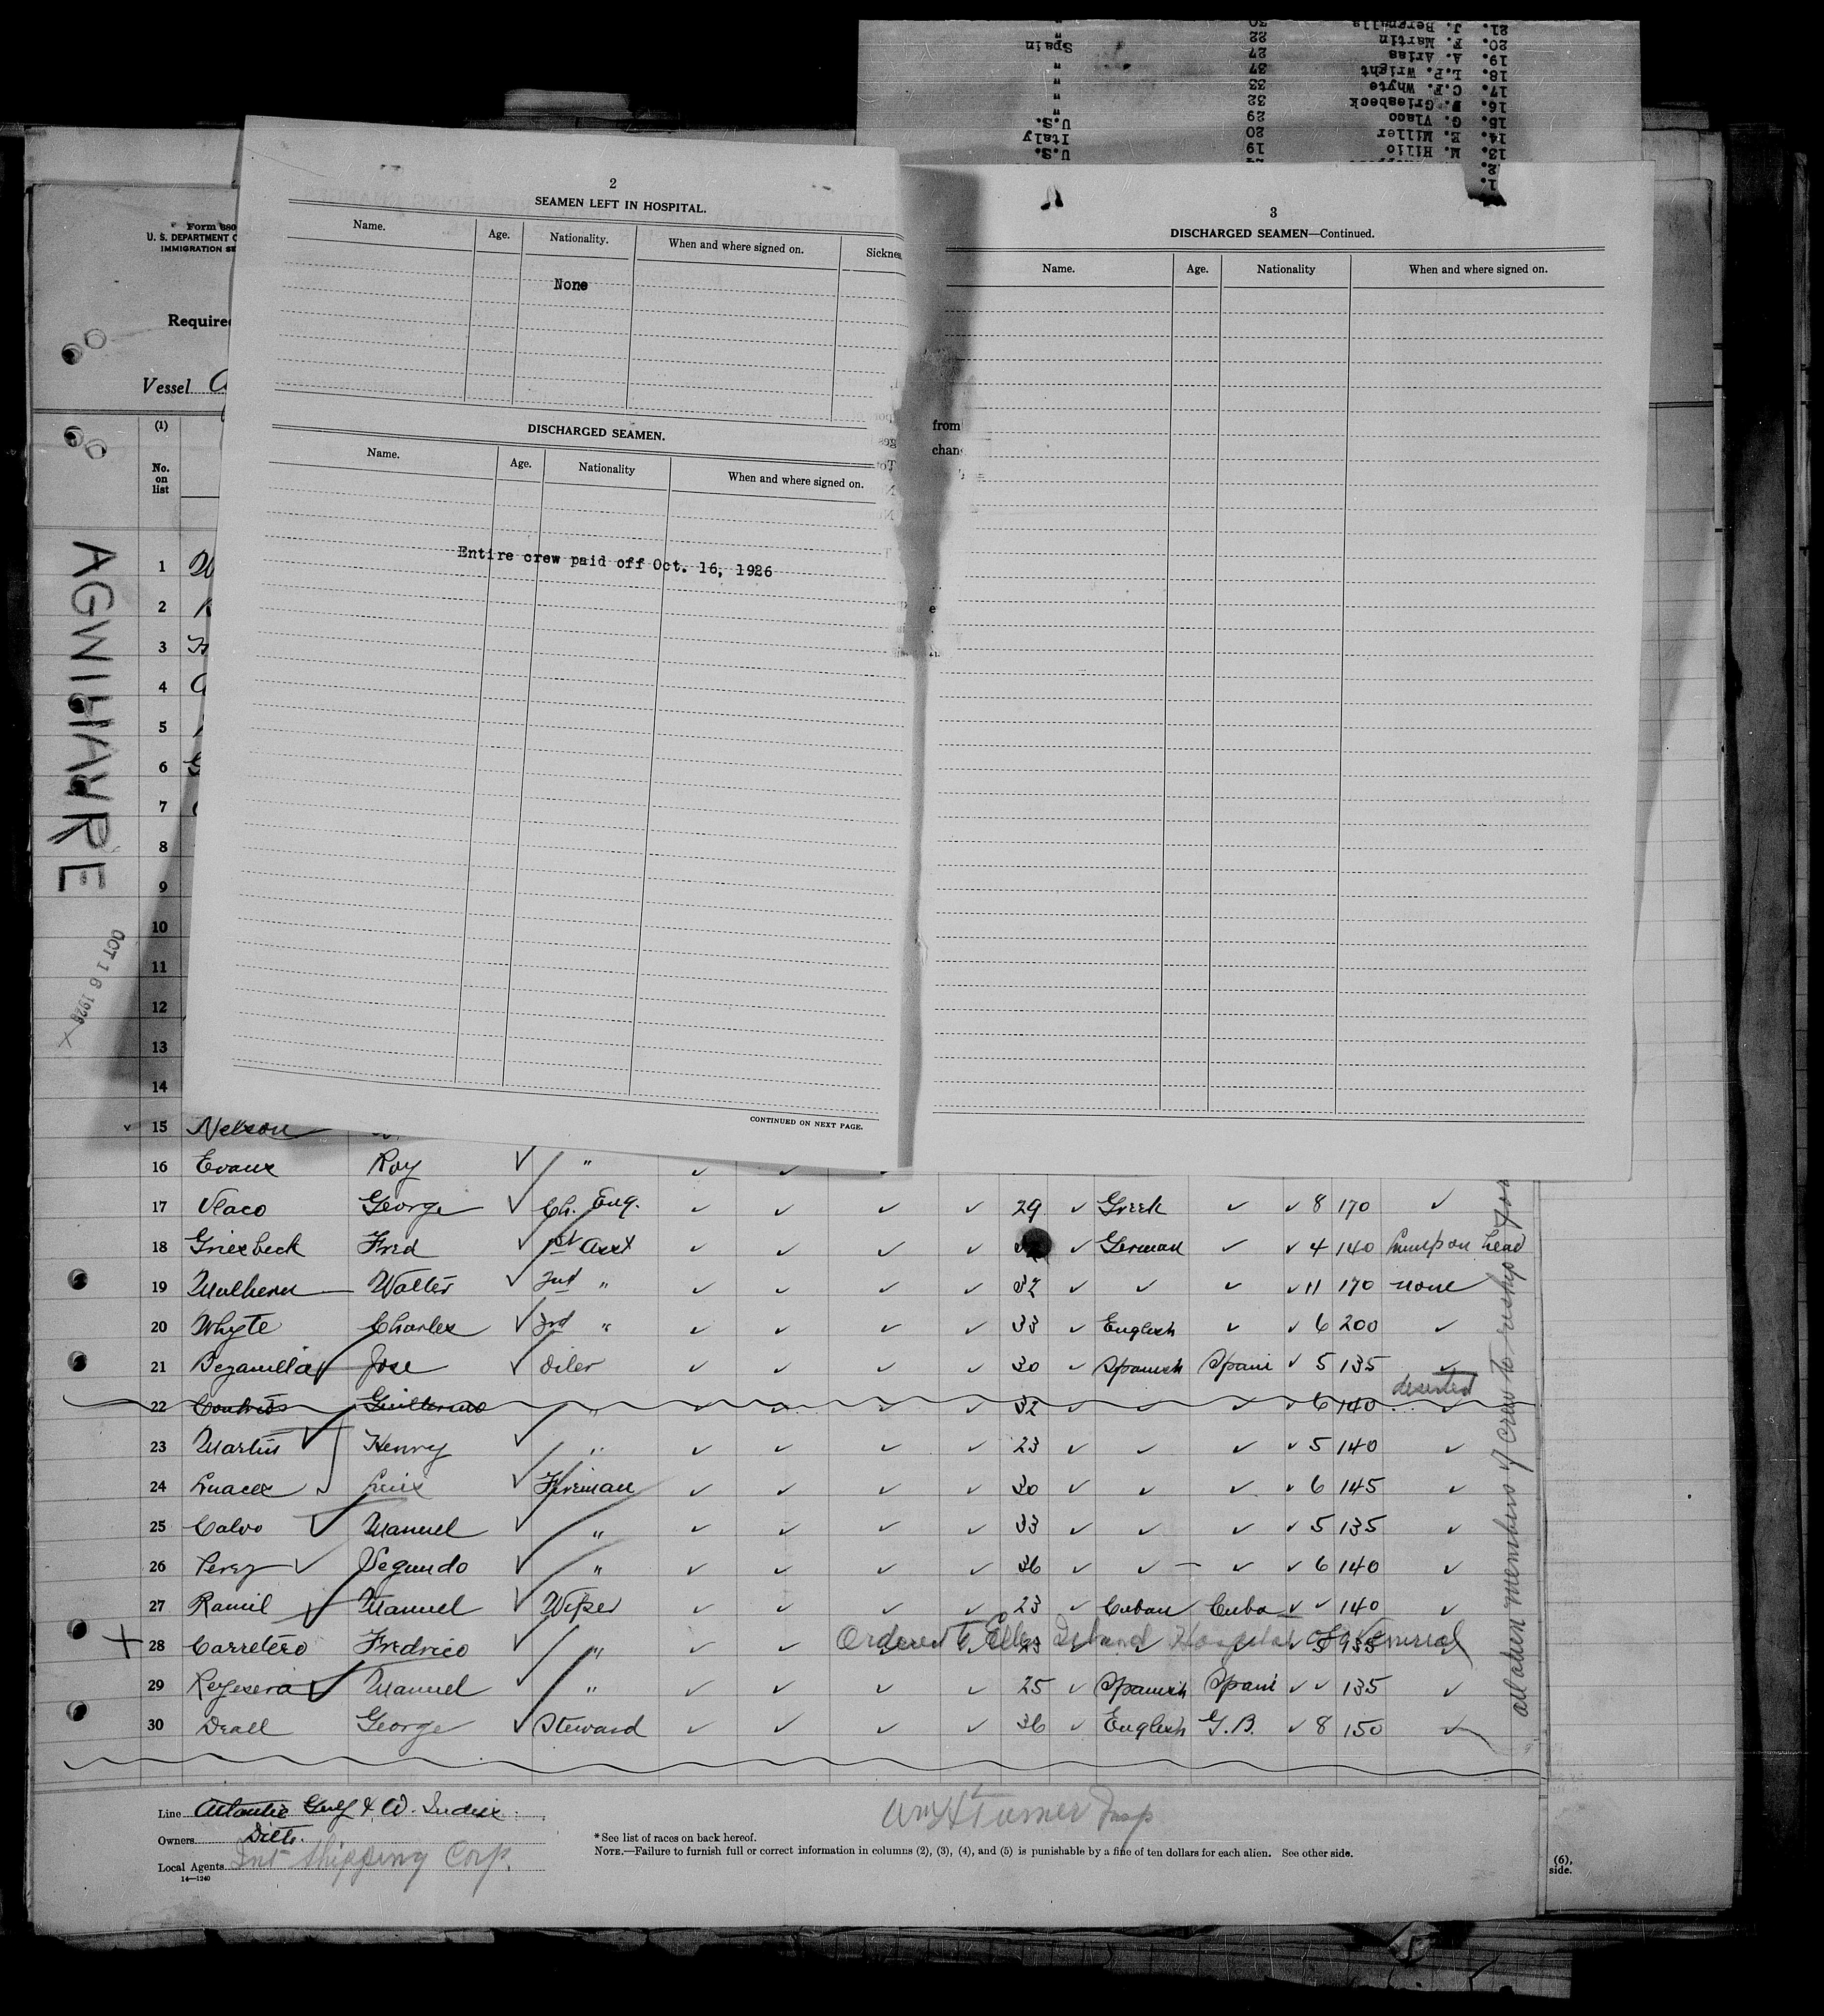 21. J. Bezanilla 30 "
20. F. Martin 22 Spain
19. A. Arias 27 "
18. L.P. Wright 37 "
17. C.F. Whyte 33 "
16. F. Griesbeck 32 "
15. G. Vlaco 29 U.S.
14. E. Miller 20 Italy
13. M. Hillo 19 U.S.
2
SEAMEN LEFT IN HOSPITAL.
Name. Age. Nationality. When and where signed on. Sicknes
None
DISCHARGED SEAMEN.
Name. Age. Nationality When and where signed on.
Entire crew paid off Oct. 16, 1926
CONTINUED ON NEXT PAGE.
3
DISCHARGED SEAMEN—Continued.
Name. Age. Nationality When and where signed on.
from
chan
Form 680
U. S. DEPARTMENT O
IMMIGRATION SE
Require
Vessel
(1)
No. on list
AGWIHAVRE
OCT 16 1926
1
2
3
4
5
6
7
8
9
10
11
12
13
14
15 Nelson
16 Evans Roy "
17 Vlaco George Ch. Eng. 29 Greek 8 170
18 Griesbeck Fred 1st Asst German 4 140 Lump on head
19 Mulhern Walter 2nd " 32 11 170 none
20 Whyte Charles 3rd " 33 English 6 200
21 Bezanilla Jose Oiler 30 Spanish Spain 5 135
deserted
22 Guillermo " 32 6 140
23 Martin Henry " 23 5 140
24 Luis Fireman 30 6 145
25 Calvo Manuel " 33 5 135
26 Perez Segundo " 36 6 140
27 Ramil Manuel Wiper 23 Cuban Cuba 140
28 Carretero Fredrico " Ordered to Ellis Island Hospital
29 Manuel " 25 Spanish Spain 135
30 Deall George Steward 36 English G.B. 8 150
all alien members of crew to reship
Line Atlantic Gulf & W. Indies
Owners Ditto.
Local Agents Int Shipping Corp.
14—1240
Wm H Turner Insp
* See list of races on back hereof.
NOTE.—Failure to furnish full or correct information in columns (2), (3), (4), and (5) is punishable by a fine of ten dollars for each alien. See other side.
(6),
side.